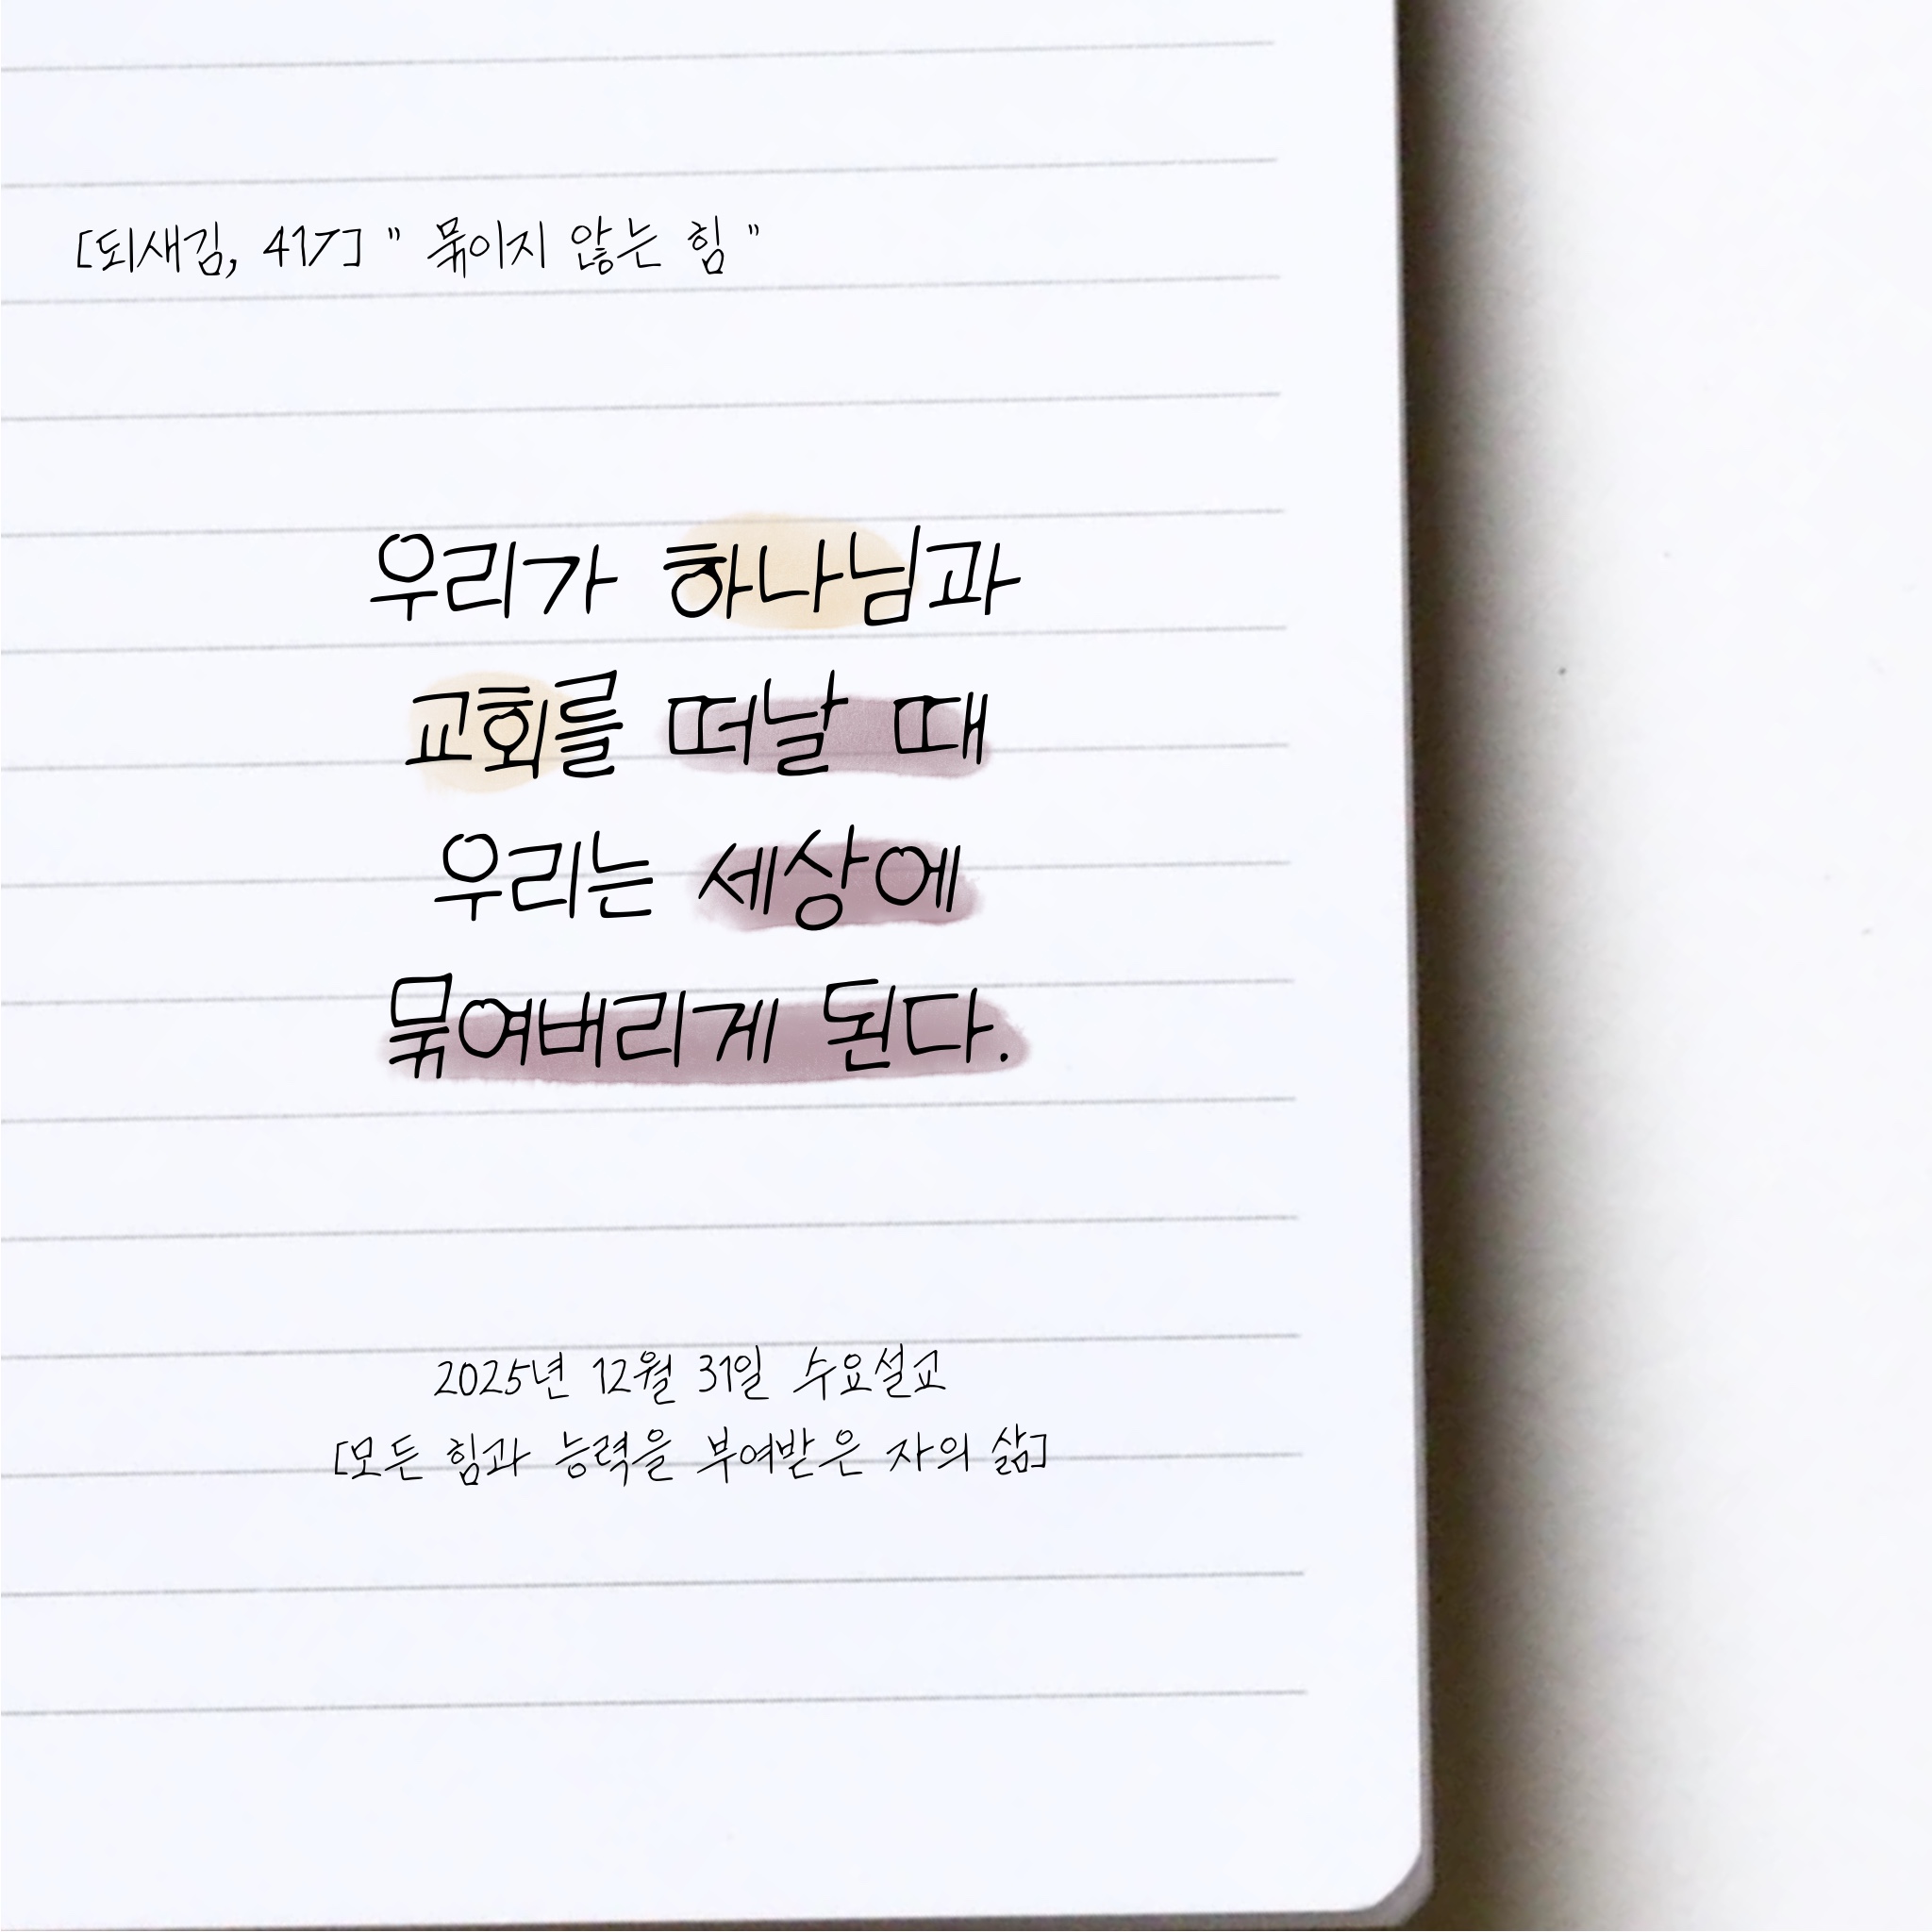 [되새김, 417] " 묶이지 않는 힘 "
우리가 하나님과
교회를 떠날 때
우리는 세상에
묶여버리게 된다.
2025년 12월 31일 수요설교
[모든 힘과 능력을 부여받은 자의 삶]